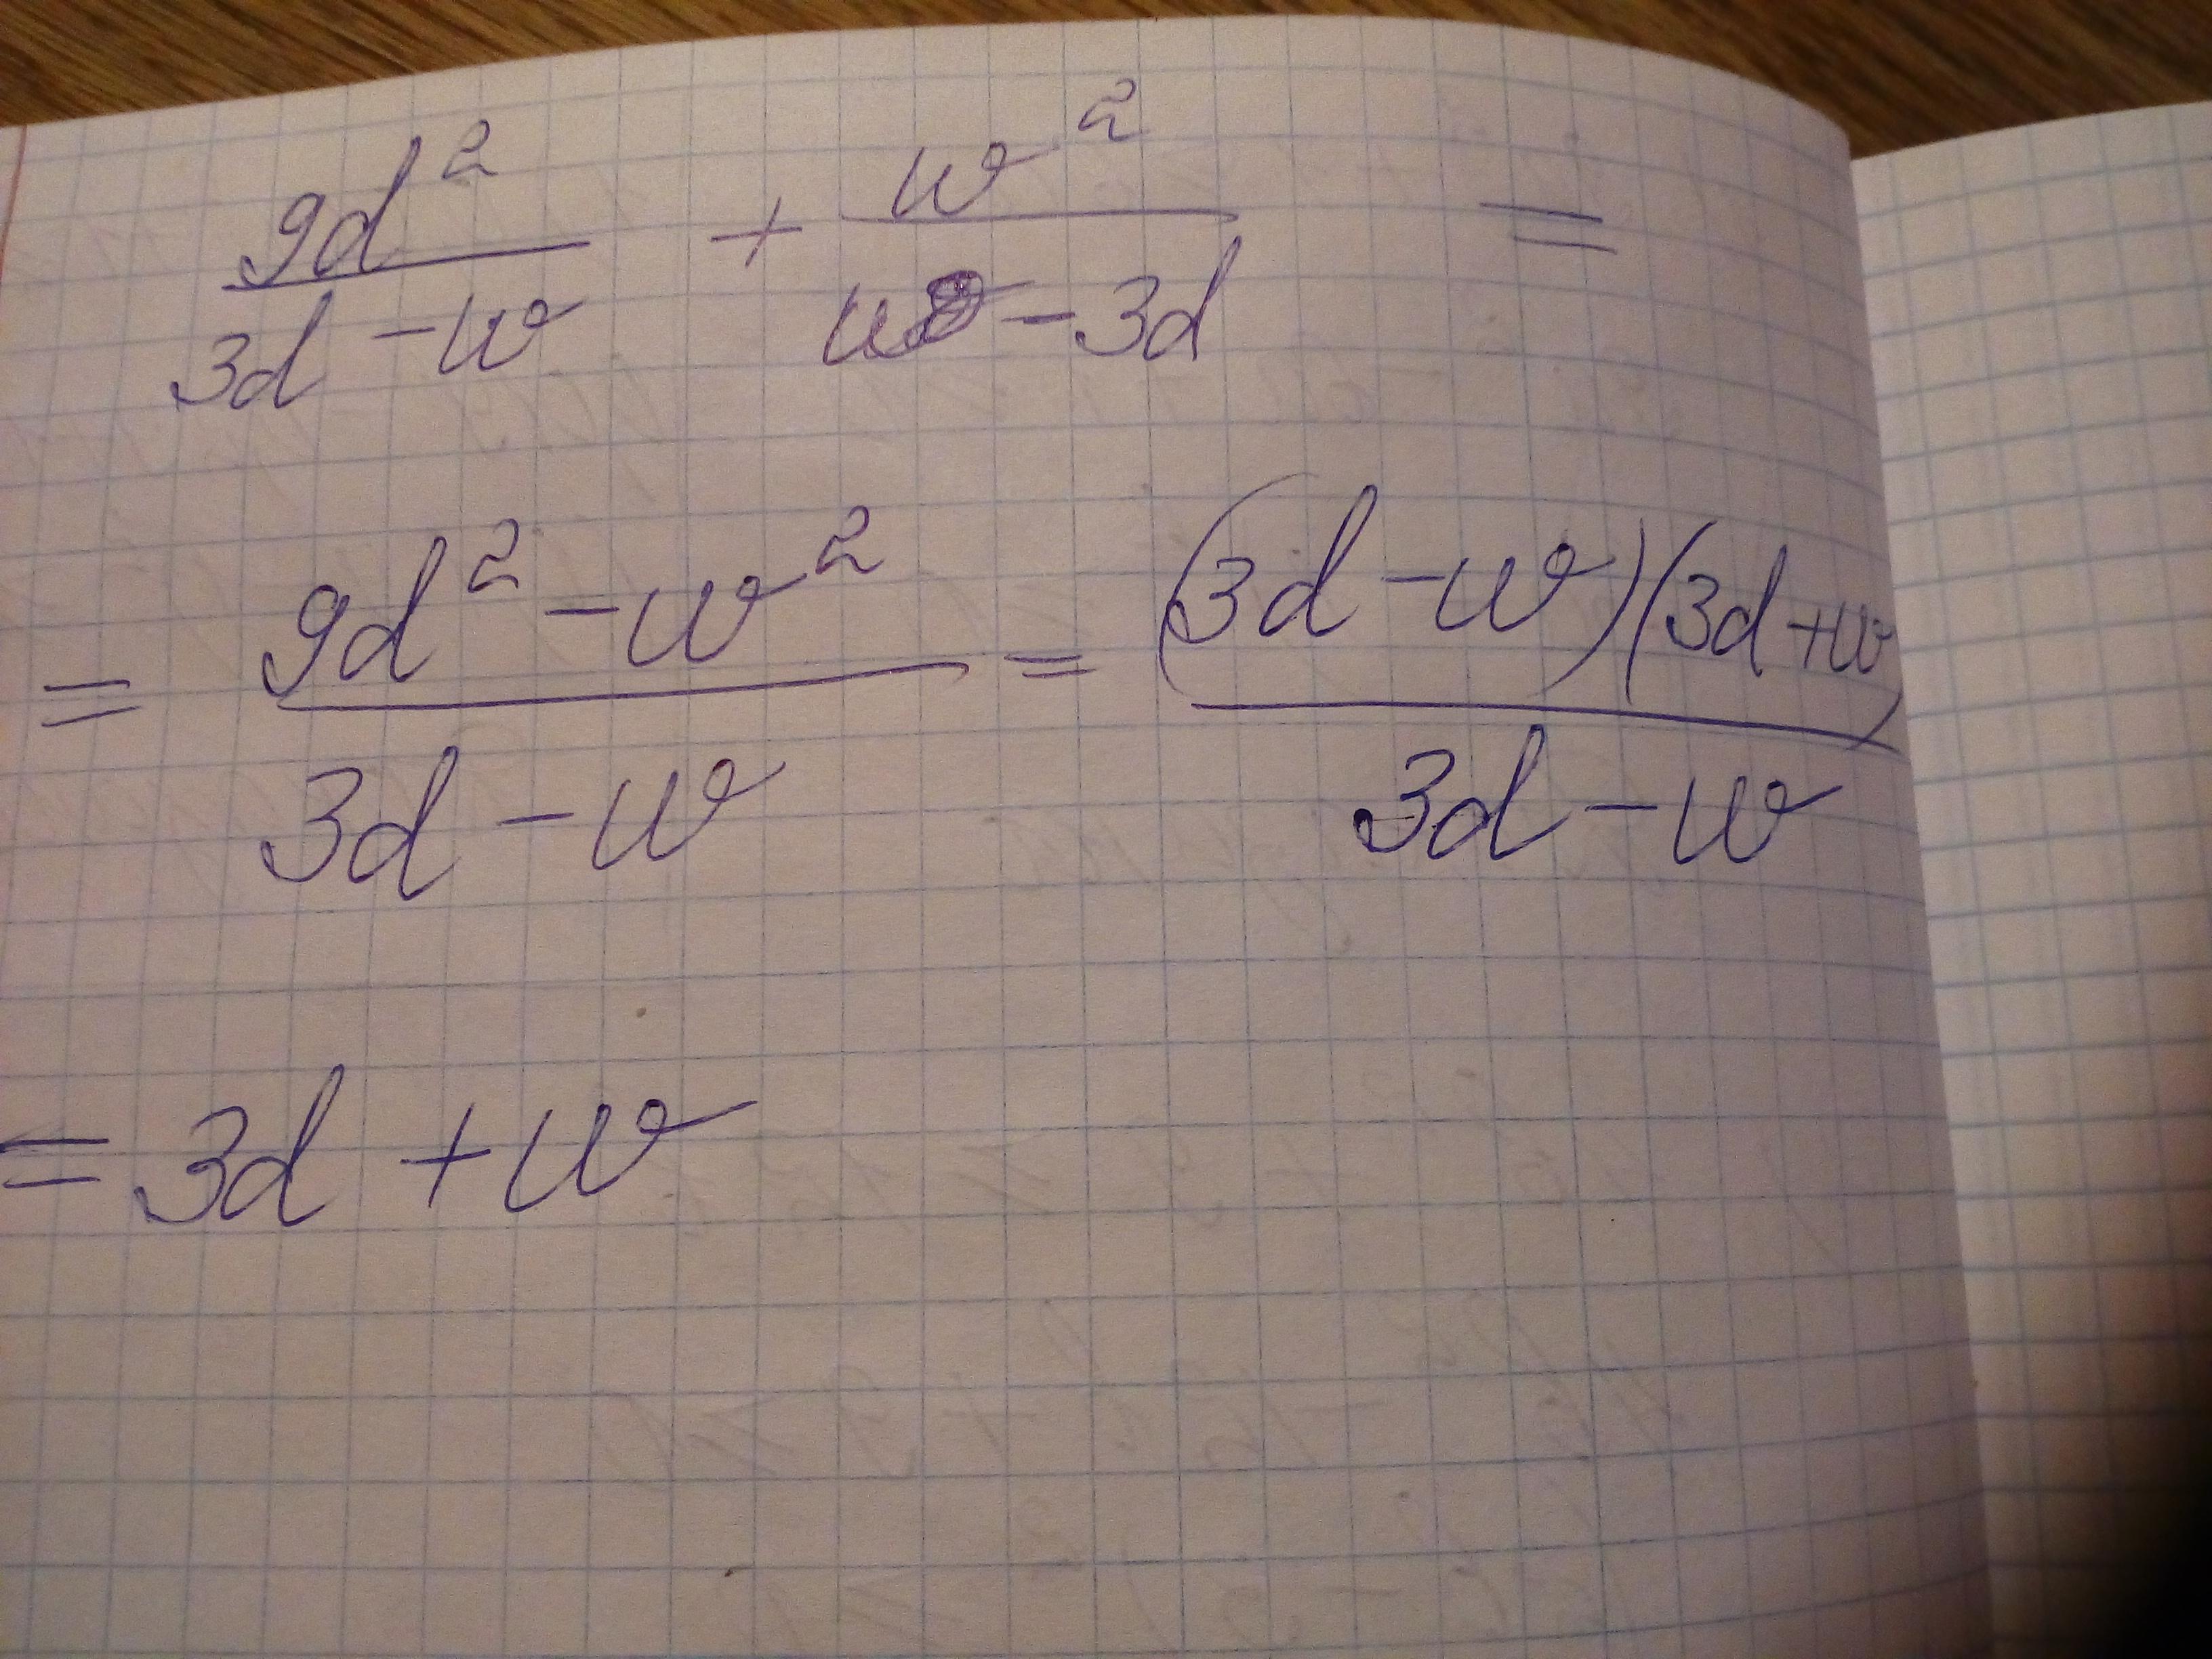 9d²/(3d - w) + w²/(w - 3d) =
= (9d² - w²)/(3d - w) = (3d - w)(3d + w)/(3d - w)
= 3d + w